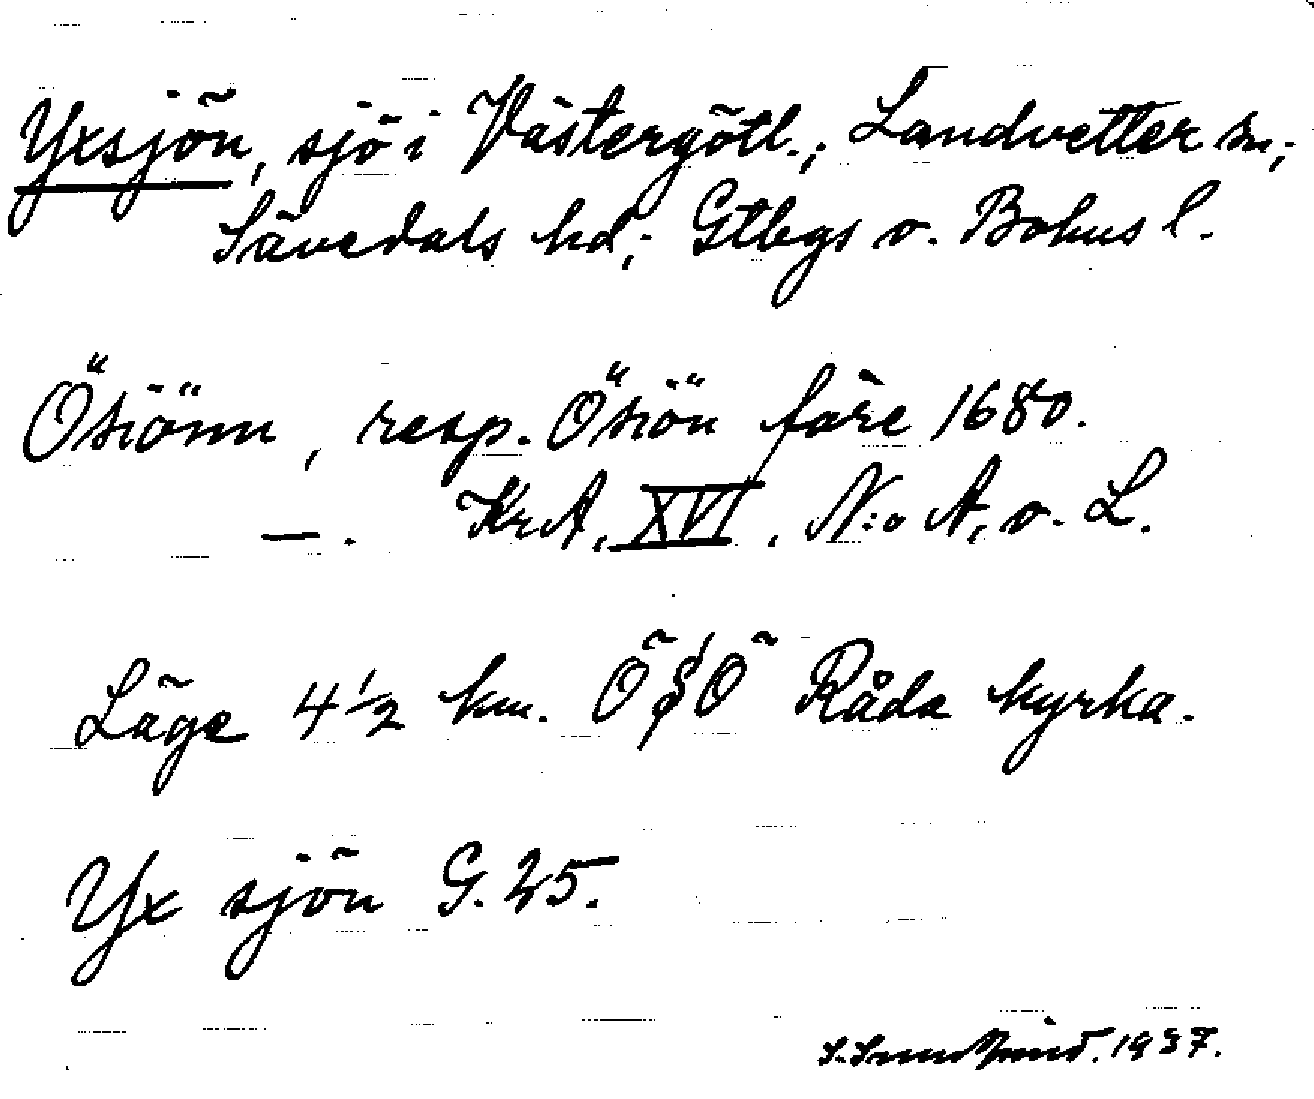 Yxsjön, sjö i Västergötl.; Landvetter sn;
Sävedals hd; Gtbgs o. Bohus l.
Ösiönn, resp. Ösiön före 1680.
—. KrA, XVI, N:o A, o. L.
Läge 4 ½ km. Ö§Ö Råda kyrka.
Yx sjön G. 25.
1937.